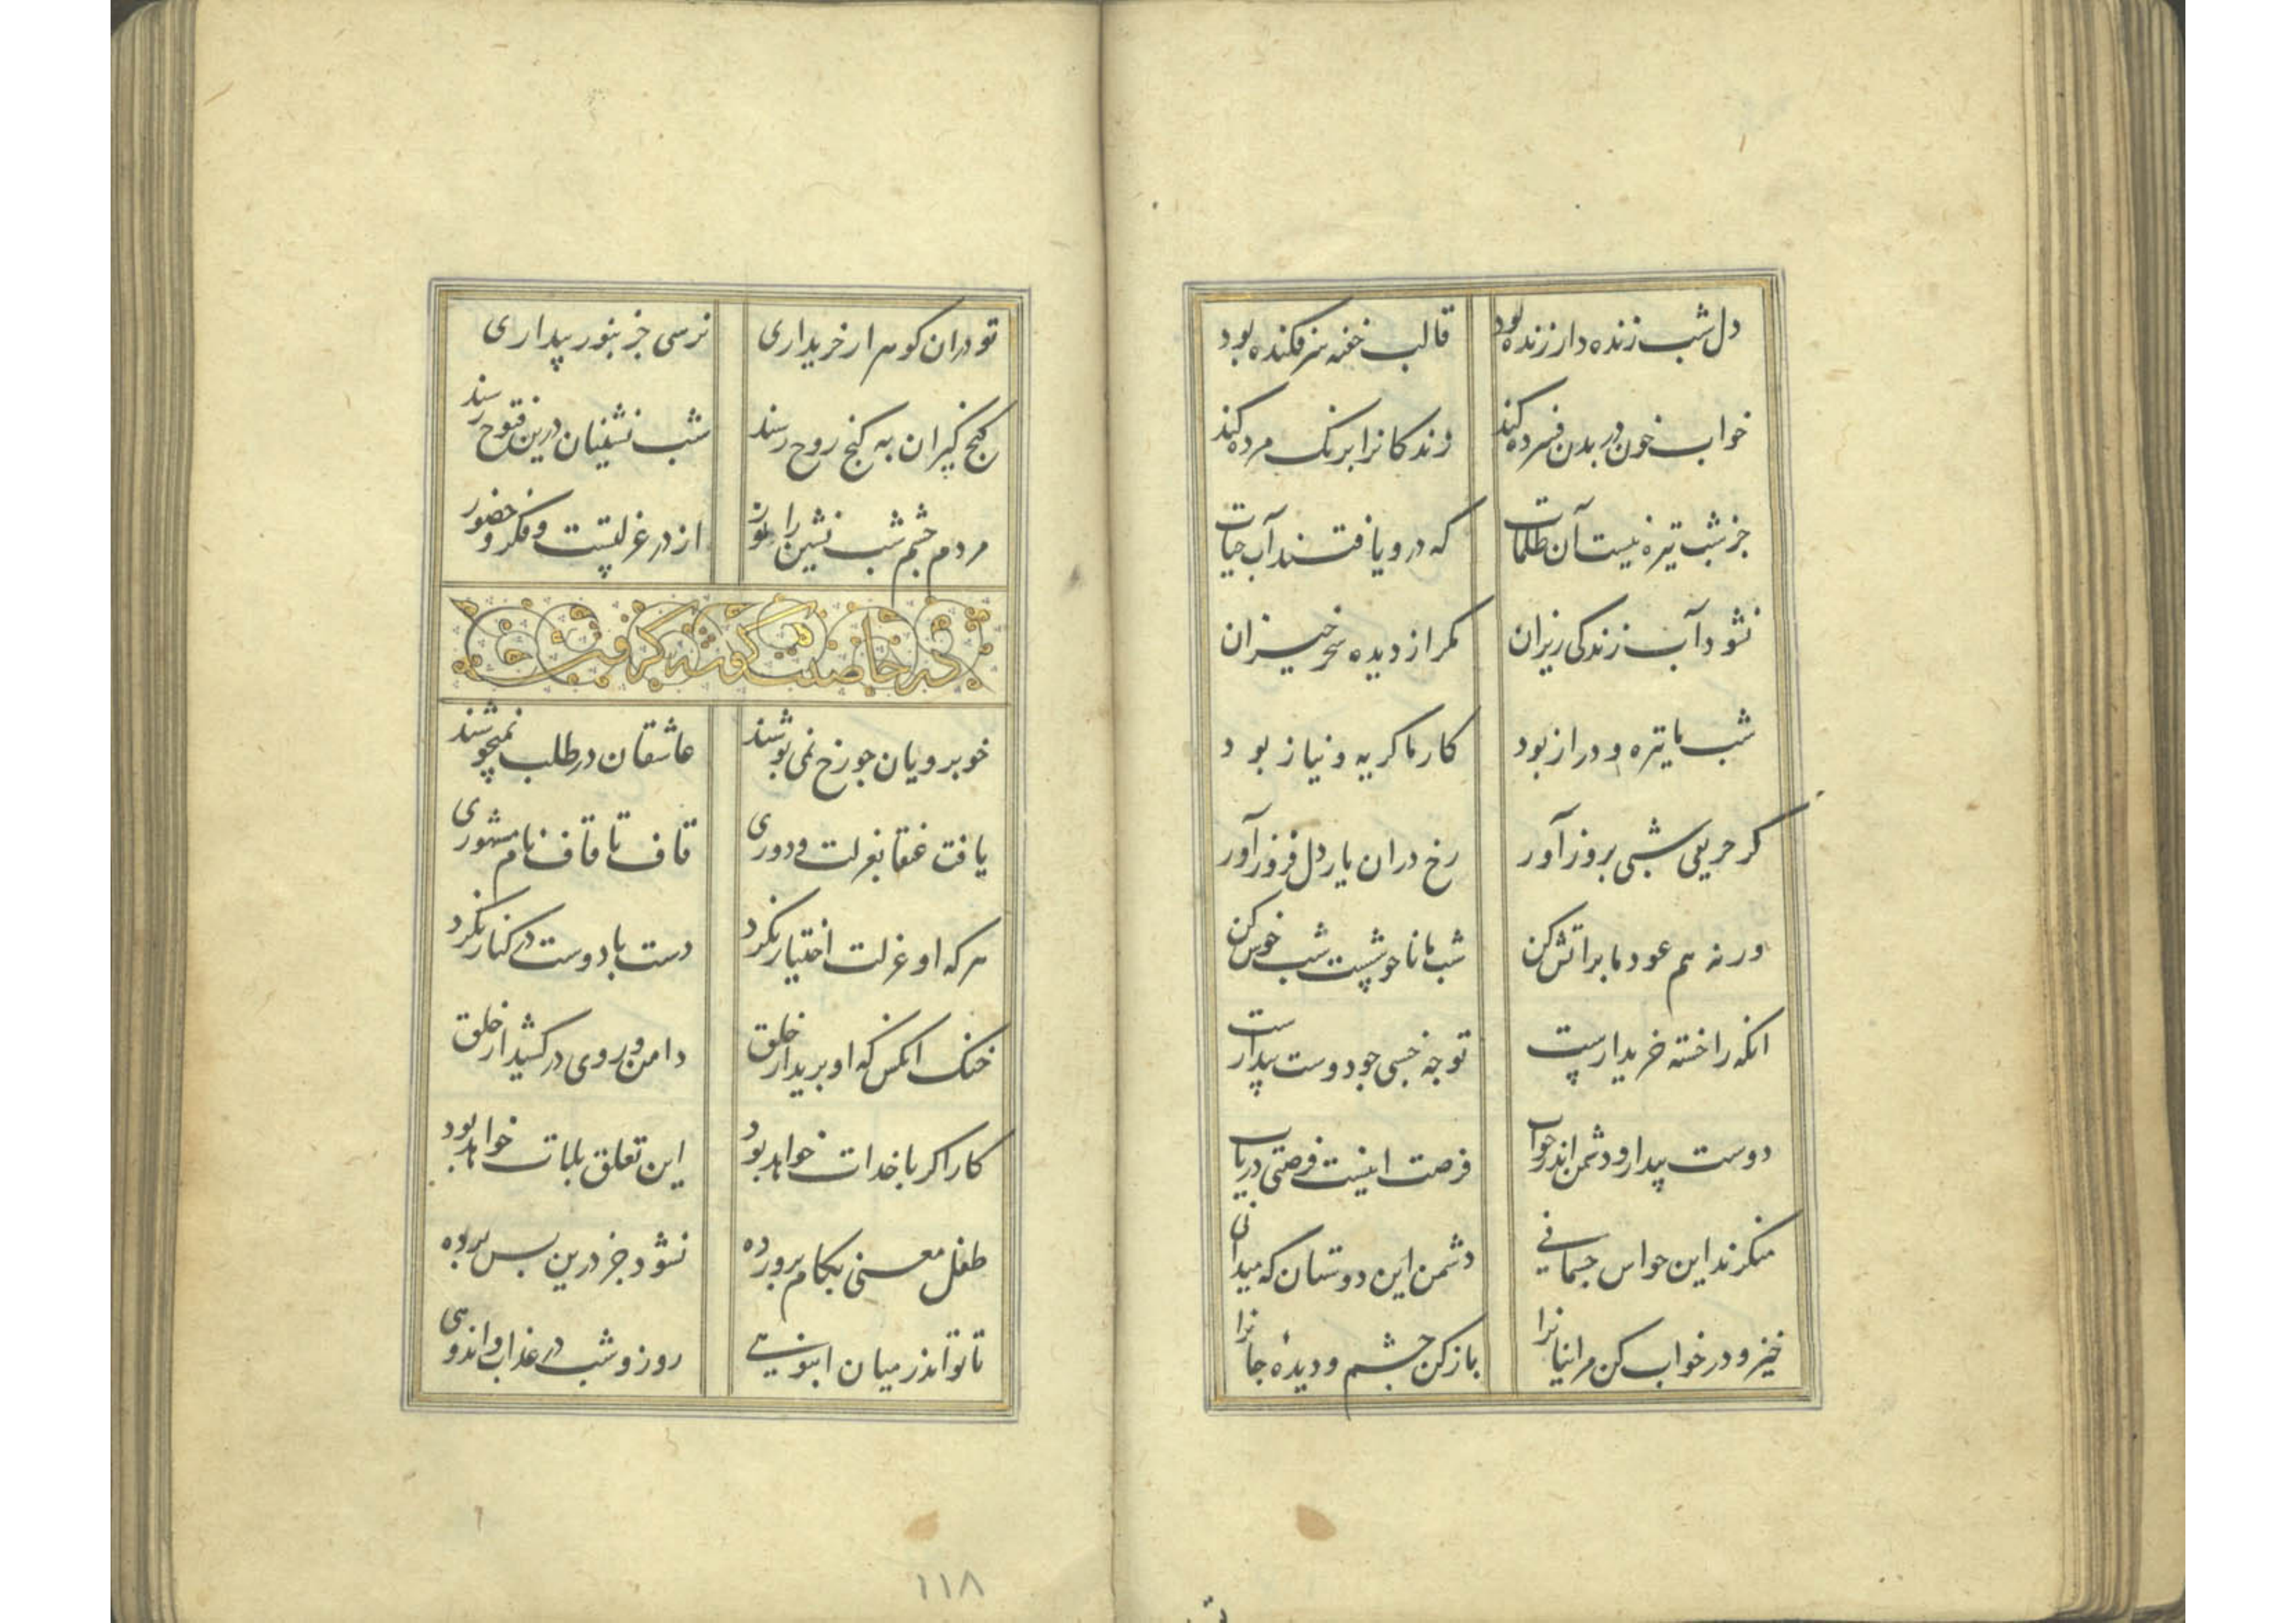 دل شب زنده دار زنده بود قالب خفته سرفکنده بود
خواب خون در بدن فسرده کند زندکانرا برنک مرده کند
جز شب تیره نیست آن ظلمات که درو یافتند آب حیات
نشود آب زندکی ریزان مکر از دیده سحرخیزان
شب ما تیره و دراز بود کار ما کریه و نیاز بود
کر حریفی شبی بروز آور رخ دران یار دل فروز آور
ورنه هم عود ما بر آتش کن شب ما ناخوشیست شب خوش کن
انکه را خفته خریدارست تو چه خسبی جو دوست بیدارست
دوست بیدار و دشمن اندر خواب فرصت اینست فرصتی دریاب
منکرند این حواس جسمانی دشمن این دوستان که میدانی
خیز و در خواب کن مر اینانرا باز کن چشم و دیدهٔ جانرا
تو دران کوهر ار خریداری نرسی جز بنور بیداری
کنج کیران به کنج روح رسند شب نشینان درین فتوح رسند
مردم چشم شب نشین را نور از در عزلتست و فکر و حضور
در خاصیت کوشه کرفتن
خوبرویان جو رخ نمی پوشند عاشقان در طلب نمیجوشند
یافت عنقا بعزلت و دوری قاف تا قاف نام مشهوری
هر که او عزلت اختیار نکرد دست با دوست در کنار نکرد
خنک انکس که او برید از خلق دامن و روی در کشید از خلق
کار اکر با خدات خواهد بود این تعلق بلات خواهد بود
طفل معنی بکام پرورده نشود جز درین پس پرده
تا تو اندر میان انبوهی روز و شب در عذاب و اندوهی
۱۱۸